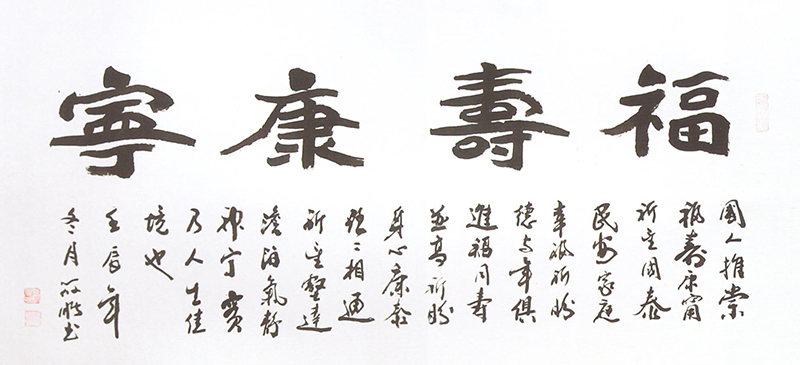 福壽康寧
國人推崇
福壽康甯
祈望國泰
民安家庭
幸福祈盼
德与年俱
進福同壽
並高祈盼
身心康泰
相通
祈望豁達
澹泊氣静
神宁實
乃人生佳
境也
壬辰年
冬月书